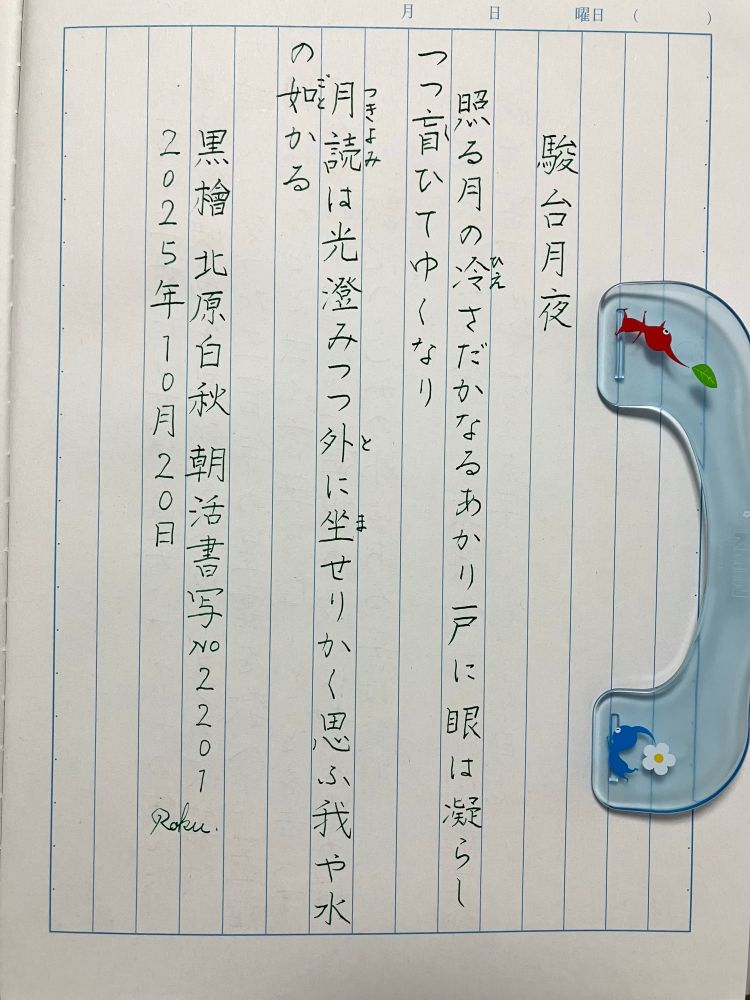 月 日 曜日 ( )
駿台月夜
照る月の冷さだかなるあかり戸に眼は凝らし
ひえ
つつ盲ひてゆくなり
し
月読は光澄みつつ外に坐せりかく思ふ我や水
つきよみ
と
ま
の如かる
ごと
黒檜 北原白秋 朝活書写NO2201
2025年10月20日
Roku.